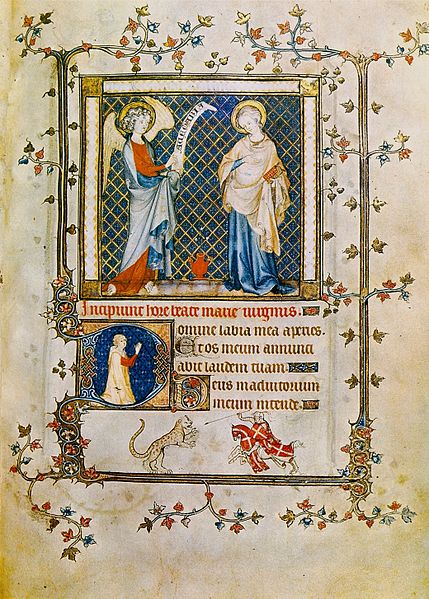 Incipiunt hore beate marie virginis
Domine labia mea aperies.
Et os meum annunci
abit laudem tuam
Deus in adiutorium
meum intende.